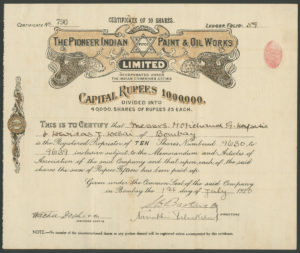 CERTIFICATE OF 10 SHARES.
CERTIFICATE No. 790
LEDGER FOLIO
THE PIONEER INDIAN PAINT & OIL WORKS
LIMITED
INCORPORATED UNDER
THE INDIAN COMPANIES ACT
CAPITAL RUPEES 1,000,000.
DIVIDED INTO
40,000 SHARES OF RUPEES 25 EACH.
THIS IS TO CERTIFY that Messrs
of Bombay
is the Registered Proprietor of TEN Shares Numbered 9630 to
9639 inclusive subject to the Memorandum and Articles of
Association of the said Company and that upon each of the said
shares the sum of Rupees Fifteen has been paid up.
Given under the Common Seal of the said Company
in Bombay the 1st day of July
DIRECTORS
NOTE:—No transfer of the abovementioned shares or any portion thereof will be registered unless accompanied by this certificate.